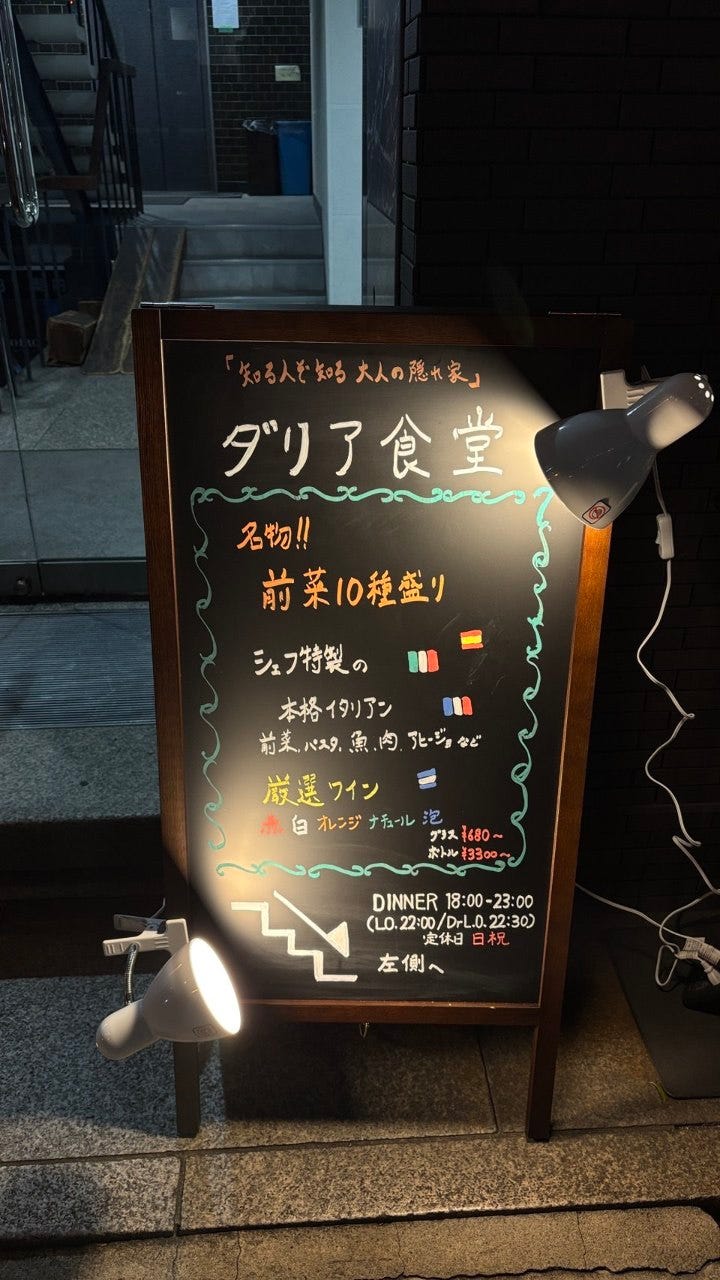 「知る人ぞ知る 大人の隠れ家」
ダリア食堂
名物!!
前菜10種盛り
シェフ特製の
本格イタリアン
前菜、パスタ、魚、肉、アヒージョなど
厳選ワイン
赤 白 オレンジ ナチュール 泡
グラス ¥680~
ボトル ¥3300~
DINNER 18:00-23:00
(L.O. 22:00/Dr L.O. 22:30)
定休日 日祝
左側へ